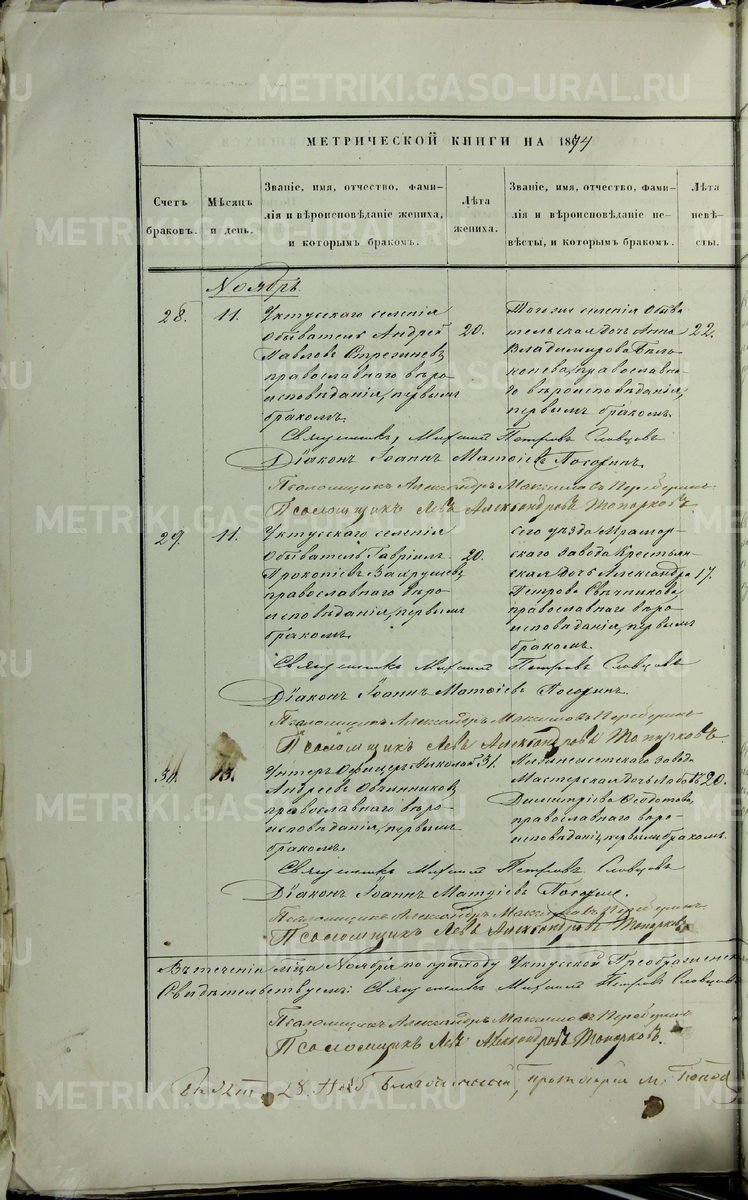 МЕТРИЧЕСКОЙ КНИГИ НА 1874
Счетъ браковъ.
Мѣсяцъ и день.
Званіе, имя, отчество, фами-
лія и вѣроисповѣданіе жениха,
и которымъ бракомъ.
Лѣта жениха.
Званіе, имя, отчество, фами-
лія и вѣроисповѣданіе не-
вѣсты, и которымъ бракомъ.
Лѣта невѣ-
сты.
Ноябрь.
28.
11.
Уктусскаго селенія
Обыватель Андрей
Павловъ
православнаго вѣро-
исповѣданія, первымъ
бракомъ.
20.
селенія Обыва
тельская дочь Анна
Владимирова
православна
го вѣроисповѣданія,
первымъ бракомъ.
22.
Священникъ Михаилъ Петровъ Словцовъ
Діаконъ Іоаннъ Матѳіевъ
Псаломщикъ Александръ Максимовъ
Псаломщикъ Левъ Александровъ Топорковъ
29.
11.
Уктусскаго селенія
Обыватель Гавріилъ
Прокопіевъ Вахрушевъ,
православнаго вѣро-
исповѣданія, первымъ
бракомъ.
20.
сего уѣзда Мрамор-
скаго Завода Крестьян-
ская дочь Александра
Петрова Свѣчникова,
православнаго вѣро
исповѣданія, первымъ
бракомъ.
17.
Священникъ Михаилъ Петровъ Словцовъ
Діаконъ Іоаннъ Матѳіевъ
Псаломщикъ Александръ Максимовъ
Псаломщикъ Левъ Александровъ Топорковъ.
13.
Унтеръ Офицеръ Николай
Андреевъ Овчинниковъ,
православнаго вѣро-
исповѣданія, первымъ
бракомъ.
31.
Завода
Мастерская дочь Любовь
Димитріева Ѳедотова,
православнаго вѣро-
исповѣданія, первымъ бракомъ.
20.
Священникъ Михаилъ Петровъ Словцовъ
Діаконъ Іоаннъ Матѳіевъ
Псаломщикъ Александръ Максимовъ
Псаломщикъ Левъ Александровъ Топорковъ
Въ теченіи мѣсяца Ноября по приходу Уктусской Преображенской
Свидѣтельствуемъ: Священникъ Михаилъ Петровъ Словцовъ
Псаломщикъ Александръ Максимовъ
Псаломщикъ Левъ Александровъ Топорковъ.
28 Благочинный, протоіерей М. Попов
METRIKI.GASO-URAL.RU